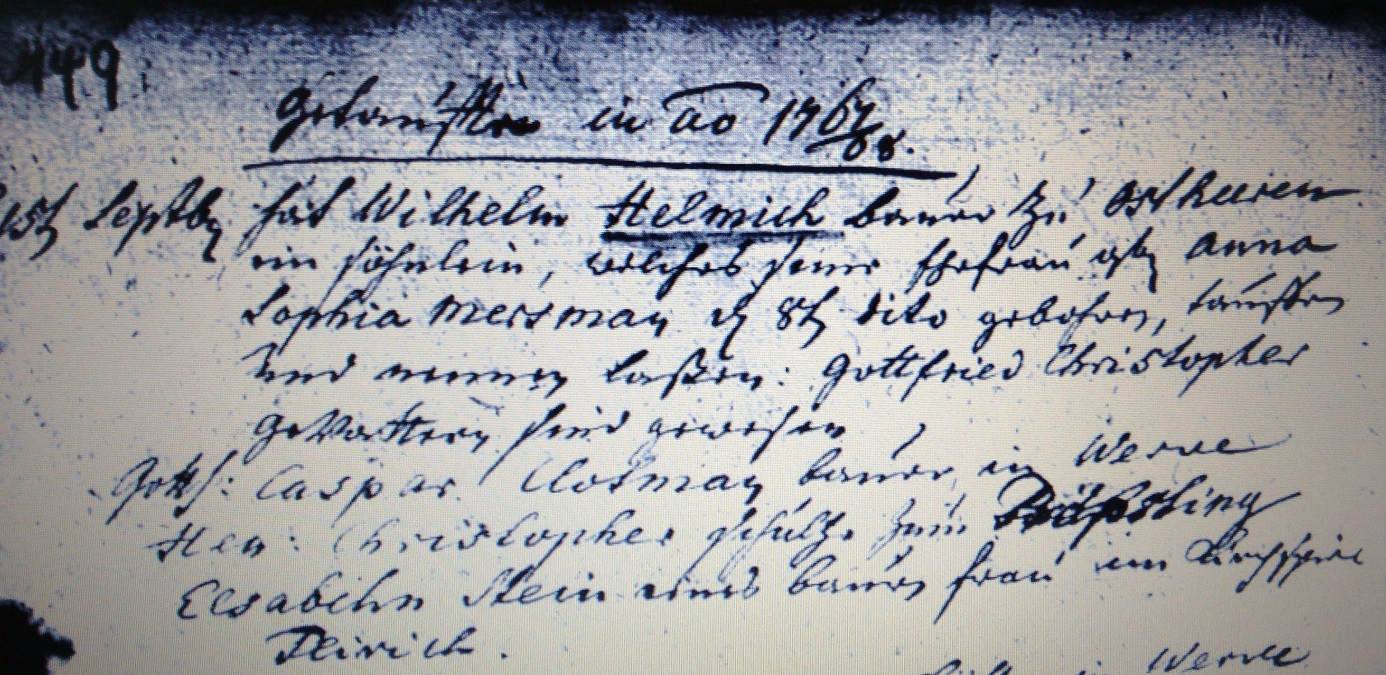 449
Getauffte in ao 1767/68.
15t Septbr hat Wilhelm Helmich bauer zu Ostheuren
ein söhnlein, welches seine Ehefrau gb Anna
Sophia Mersman d 8t dito gebohren, tauffen
und nennen laßen: Gottfried Christopher
Gevattern sind gewesen,
Gottf: Caspar Clotman bauer in Werve
Hen: Christopher schulze zum
Elsabehn Stein eines bauern frau im Kirchspiel
Flirich.
Werve